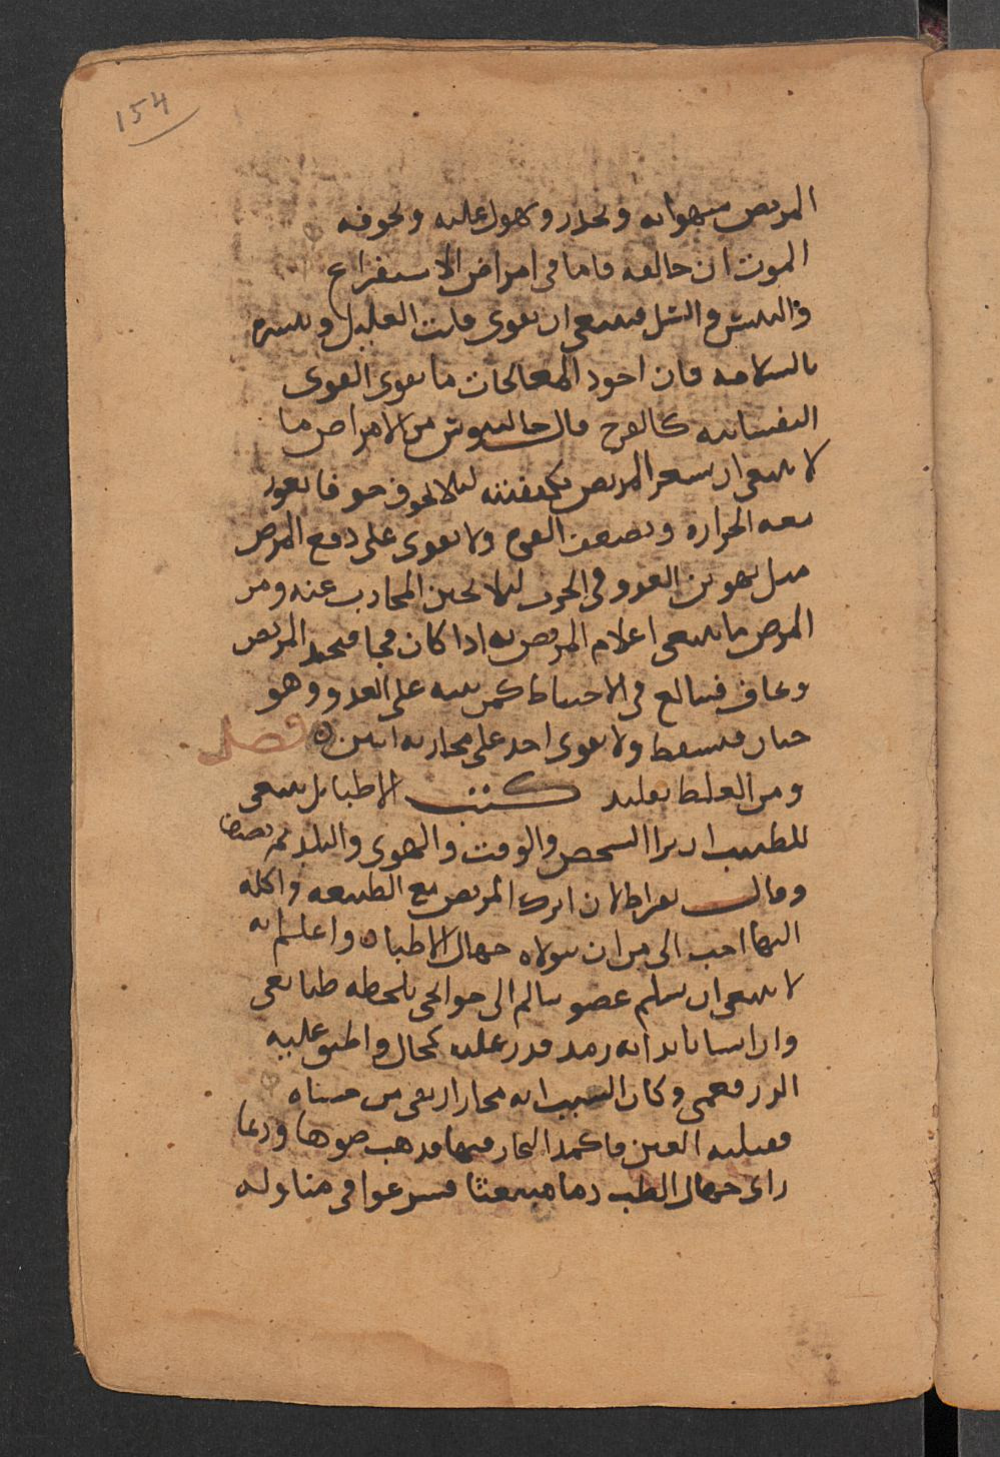 154
المريض بشهواته ويحذر ويهول عليه ويخوفه
الموت ان خالفه فاما في امراض الاستفراغ
والسل فينبغي ان يقوي قلب العليل ويبشره
بالسلامه فان اجود المعالجات ما يقوي القوى
النفسانيه كالفرح قال جالينوس من الامراض ما
لا ينبغي ان يشعر المريض بكيفيته ليلا يخوف خوفا يغور
معه الحراره ويضعف القوه ولا يقوى على دفع المرض
مثل تهوين العدو في الحرب ليلا يجبن المحارب عنه ومن
المرض ما ينبغي اعلام المريض به اذا كان فيحذر المريض
ويخاف فيبالغ في الاحتياط كمن ينبه على العدو وهو
جبان فيسقط ولا يقوى احد على محاربة اثنين ٥ فصل
ومن الغلط تقليد كتب الاطبا بل ينبغي
للطبيب ان يرا الشخص والوقت والهوى والبلد ثم
وقال بقراط لان اترك المريض مع الطبيعه واكله
اليها احب الى من ان يتولاه جهال الاطباء واعلم انه
لا ينبغي ان يسلم عضو سالم الى جوالحي
وان انسانا بدا به رمد فدر عليه كحال واطبق عليه
الدر فعمي وكان السبب انه بخارا ارتقى من
فقبلته العين فاكمد البخار فيها فذهب ضوها وربما
راى جهال الطب دما منبعثا فسرعوا في مناوله